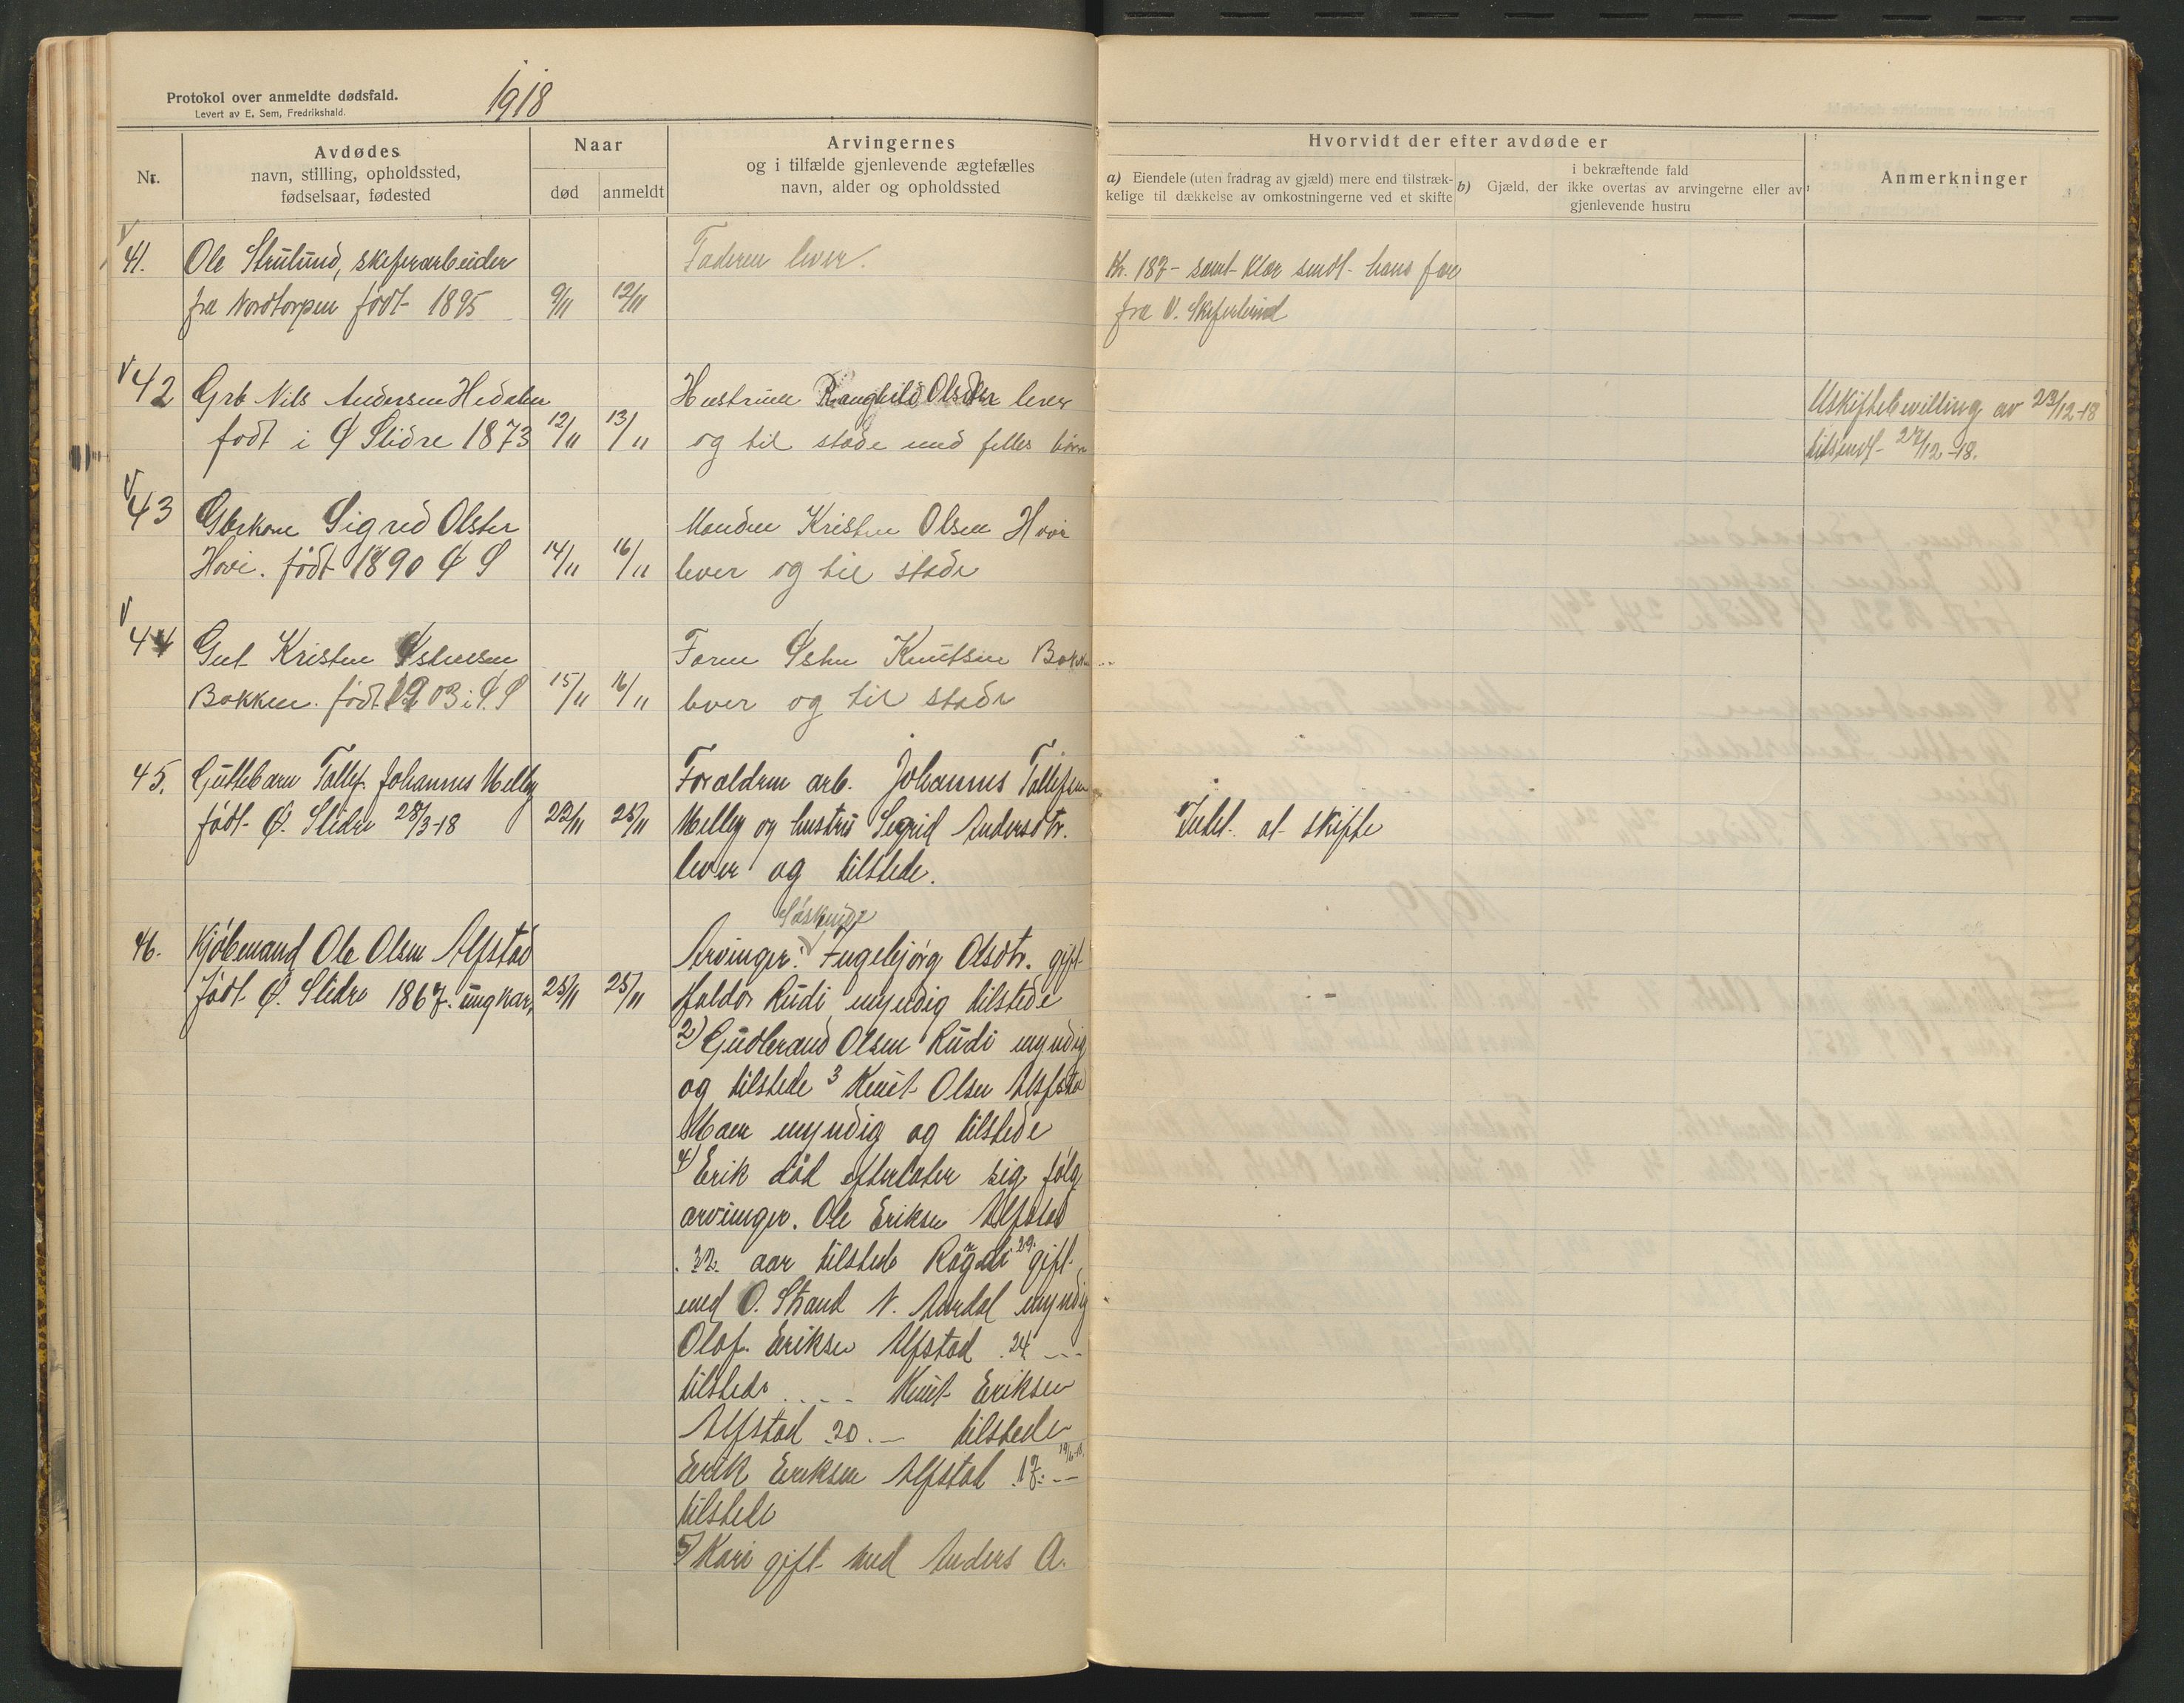 Protokol over anmeldte dødsfald.
Levert av E. Sem, Fredrikshald.
1918
Nr.
Avdødes
navn, stilling, opholdssted,
fødselsaar, fødested
Naar
død
anmeldt
Arvingernes
og i tilfælde gjenlevende ægtefælles
navn, alder og opholdssted
Hvorvidt der efter avdøde er
a) Eiendele (uten fradrag av gjæld) mere end tilstræk-
kelige til dækkelse av omkostningerne ved et skifte
i bekræftende fald
b) Gjæld, der ikke overtas av arvingerne eller av
gjenlevende hustru
Anmerkninger
41. Ole Strulund, skiferarbeider
fra Nordtorpen født 1895 9/11 12/11
Faderen lever.
Kr. 187- samt klær sendt hans far
fra V. Skiferbrud
42 Grb Nils Andersen Hedalen
født i Ø Slidre 1873 12/11 13/11
Hustruen Ranghild Olsdtr lever
og til stede med felles børn
Uskiftebevilling av 23/12-18
tilsendt 27/12-18.
43 Gbrkone Sigrid Olsdtr
Hovi. født 1890 Ø S 14/11 16/11
Manden Kristen Olsen Hovi
lever og til stede
44 Gut Kristen Østensen
Bakken. født 1903 i Ø. S 15/11 16/11
Faren Østen Knutsen Bakken
lever og til stede
45. Guttebarn Tollef Johannes Melby
født Ø. Slidre 28/3-18 22/11 25/11
Foraldren arb. Johannes Tollefsen
Melby og hustru Sigrid Andersdtr.
lever og tilstede.
Intet at skifte
46. Kjøbmand Ole Olsen Alfstad
født Ø. Slidre 1867. ungkar, 23/11 25/11
Søskende
Arvinger: Ingebjørg Olsdtr. gift
Haldor Rudi myndig tilstede
2) Gudbrand Olsen Rudi myndig
og tilstede 3 Knut Olsen Alfstad
Moen myndig og tilstede
4) Erik død efterlater sig følg
arvinger. Ole Eriksen Alfstad
32 aar tilstede Ragndi 29. gift
med O. Strand N. Aurdal myndig
Olaf Eriksen Alfstad 24 --
tilstede .... Knut Eriksen
Alfstad 20. — tilstede
Erik Eriksen Alfstad 17. —
tilstede
5) Kari gift med Anders A.